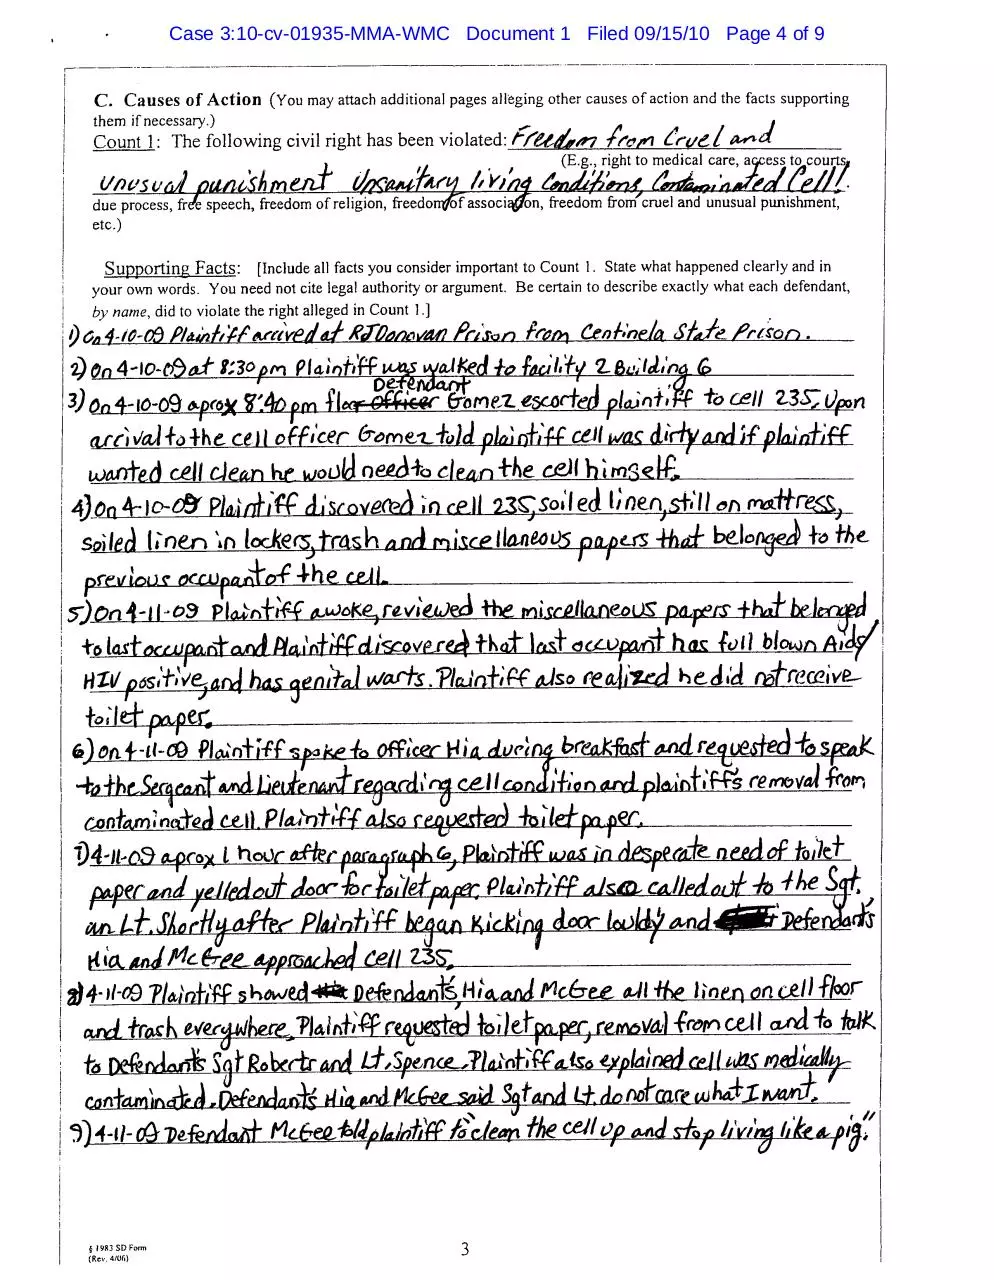 Case 3:10-cv-01935-MMA-WMC Document 1 Filed 09/15/10 Page 4 of 9
C. Causes of Action (You may attach additional pages alleging other causes of action and the facts supporting
them if necessary.)
Count 1: The following civil right has been violated: Freedom from Cruel and
(E.g., right to medical care, access to courts,
Unusual punishment Unsanitary living Conditions, Contaminated Cell!.
due process, free speech, freedom of religion, freedom of association, freedom from cruel and unusual punishment,
etc.)
Supporting Facts: [Include all facts you consider important to Count 1. State what happened clearly and in
your own words. You need not cite legal authority or argument. Be certain to describe exactly what each defendant,
by name, did to violate the right alleged in Count 1.]
1) On 4-10-09 Plaintiff arrived at RJDonovan Prison from Centinela State Prison.
2) On 4-10-09 at 8:30pm Plaintiff was walked to facility 2 Building 6
Defendant
3) On 4-10-09 aprox 8:40pm floor officer Gomez escorted plaintiff to cell 235, Upon
arrival to the cell officer Gomez told plaintiff cell was dirty and if plaintiff
wanted cell clean he would need to clean the cell himself.
4) On 4-10-09 Plaintiff discovered in cell 235, soiled linen, still on mattress,
soiled linen in lockers, trash and miscellaneous papers that belonged to the
previous occupant of the cell.
5) On 4-11-09 Plaintiff awoke, reviewed the miscellaneous papers that belonged
to last occupant and Plaintiff discovered that last occupant has full blown Aids/
HIV positive, and has genital warts. Plaintiff also realized he did not receive
toilet paper.
6) On 4-11-09 Plaintiff spoke to officer Hia during breakfast and requested to speak
to the Sergeant and Lieutenant regarding cell condition and plaintiff's removal from
contaminated cell. Plaintiff also requested toilet paper.
7) 4-11-09 aprox 1 hour after paragraph 6, Plaintiff was in desperate need of toilet
paper and yelled out door for toilet paper. Plaintiff also called out to the Sgt.
an Lt. Shortly after Plaintiff began kicking door louldy and Defendant's
Hia and McGee approached cell 235.
8) 4-11-09 Plaintiff showed Defendant's, Hia and McGee all the linen on cell floor
and trash everywhere. Plaintiff requested toilet paper, removal from cell and to talk
to Defendants Sgt Roberts and Lt. Spence. Plaintiff also explained cell was medically
contaminated. Defendant's Hia and McGee said Sgt and Lt. do not care what I want."
9) 4-11-09 Defendant McGee told plaintiff to "clean the cell up and stop living like a pig."
§ 1983 SD Form
(Rev. 4/06)
3